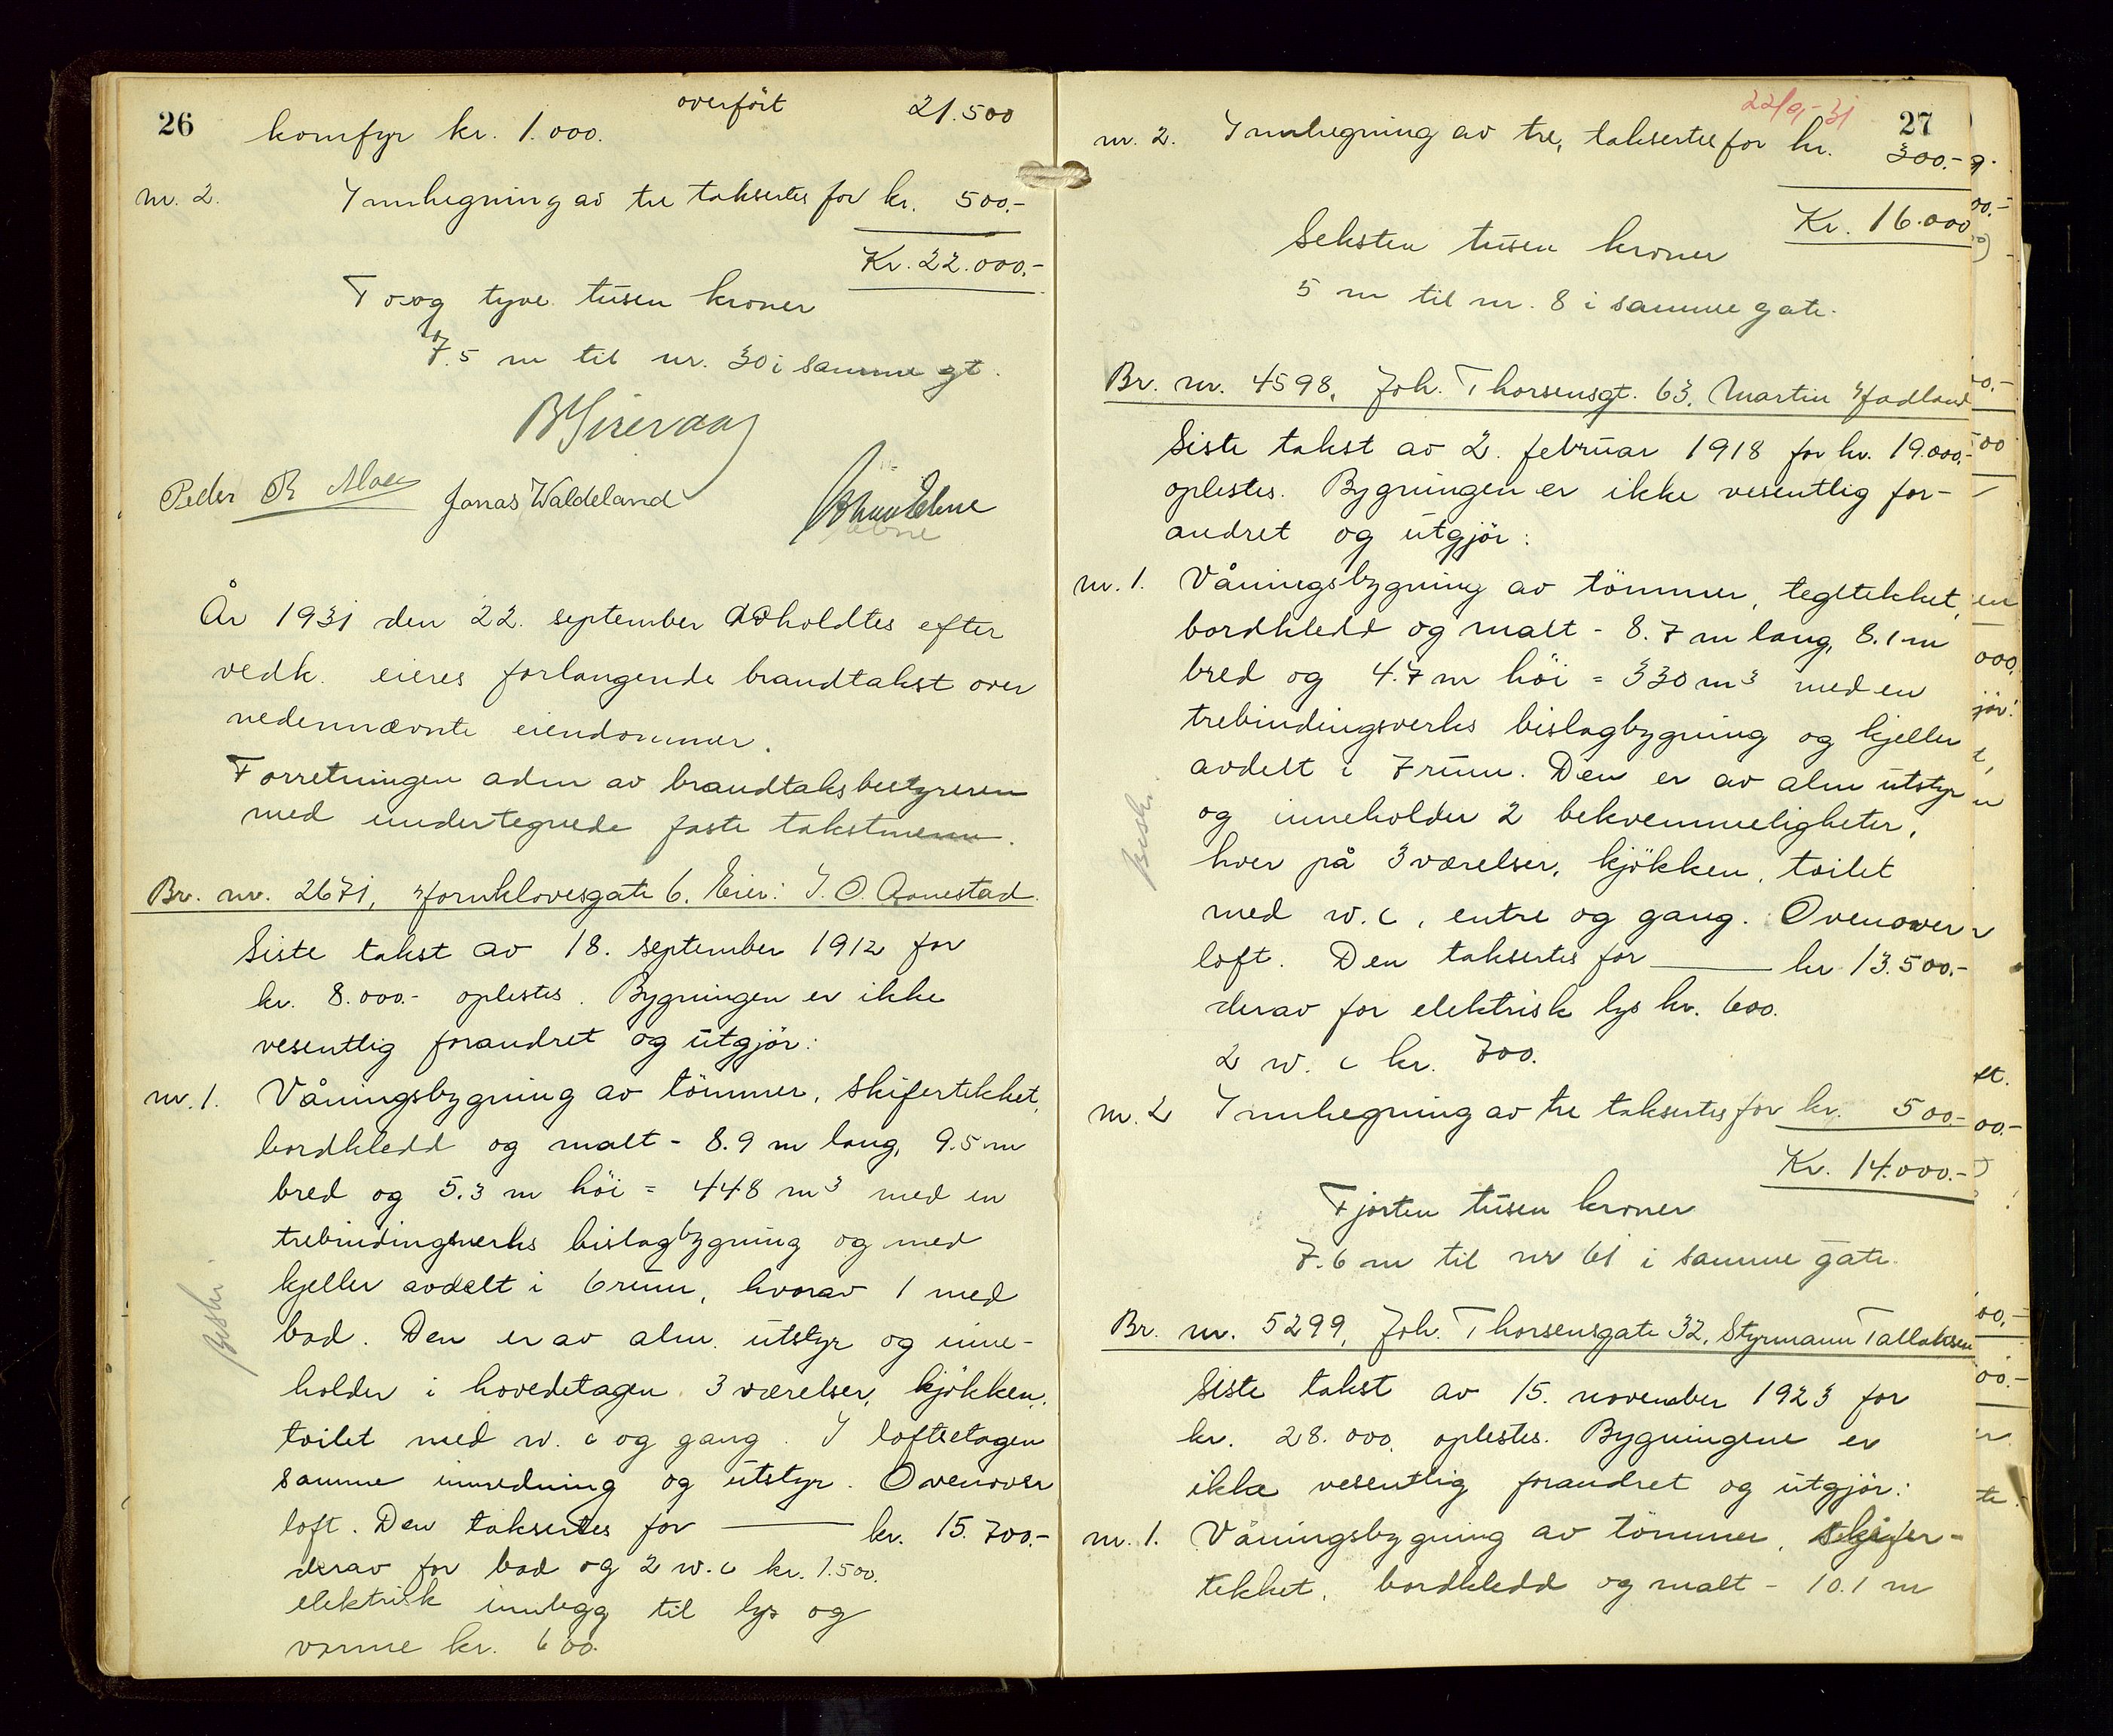 26
overført 21.500
komfyr kr. 1.000.
nr. 2. Innhegning av tre taksertes for kr. 500.-
Kr. 22.000.-
To og tyve tusen kroner
7.5 m til nr. 30 i samme gt.
Jonas Waldeland
År 1931 den 22. september avholdtes efter
vedk. eieres forlangende brandtakst over
nedennævnte eiendommer.
Forretningen adm av brandtaksbestyreren
med undertegnede faste takstmenn.
Br. nr. 2671, Hornklovesgate 6. Eier: I. O. Aanestad.
Siste takst av 18. september 1912 for
kr. 8.000.- oplestes. Bygningen er ikke
vesentlig forandret og utgjör:
nr. 1. Våningsbygning av tömmer, skifertekket,
bordkledd og malt - 8.9 m lang, 9.5 m
bred og 5.3 m höi = 448 m³ med en
trebindingsverks bislagbygning og med
kjeller avdelt i 6 rum, hvorav 1 med
bad. Den er av alm. utstyr og inne-
holder i hovedetagen 3 værelser, kjökken,
toilet med w.c og gang. I loftsetagen
samme innredning og utstyr. Ovenover
loft. Den taksertes for kr. 15.700.-
derav for bad og 2 w.c kr. 1.500.
elektrisk innlegg til lys og
varme kr. 600.
Beskr.
22/9-31
27
nr. 2. Innhegning av tre, taksertes for kr. 300.-
Kr. 16.000
Seksten tusen kroner
5 m til nr. 8 i samme gate.
Br. nr. 4598, Joh. Thorsensgt. 63, Martin Hadland
Siste takst av 2. februar 1918 for kr. 19.000.-
oplestes. Bygningen er ikke vesentlig for-
andret og utgjör:
nr. 1. Våningsbygning av tömmer, tegltekket,
bordkledd og malt - 8.7 m lang, 8.1 m
bred og 4.7 m höi = 330 m³ med en
trebindingsverks bislagbygning og kjeller
avdelt i 7 rum. Den er av alm utstyr
og inneholder 2 bekvemmeligheter,
hver på 3 værelser, kjökken, toilet
med w.c, entre og gang. Ovenover
loft. Den taksertes for kr 13.500.-
derav for elektrisk lys kr. 600.
2 w.c kr. 700.
nr. 2 Innhegning av tre taksertes for kr. 500.-
Kr. 14.000.-
Fjorten tusen kroner
7.6 m til nr 61 i samme gate.
Br. nr. 5299, Joh. Thorsensgate 32, Styrmann Tallaksen
Siste takst av 15. november 1923 for
kr. 28.000. oplestes. Bygningene er
ikke vesentlig forandret og utgjör:
nr. 1. Våningsbygning av tömmer, skifer-
tekket, bordkledd og malt - 10.1 m
Beskr.